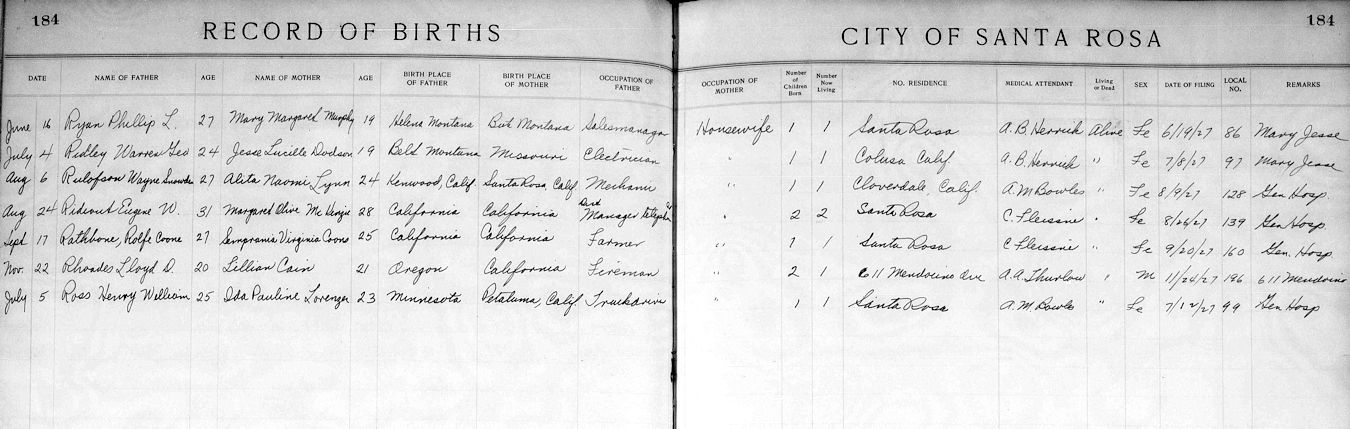 184 184
RECORD OF BIRTHS CITY OF SANTA ROSA
DATE NAME OF FATHER AGE NAME OF MOTHER AGE BIRTH PLACE OF FATHER BIRTH PLACE OF MOTHER OCCUPATION OF FATHER OCCUPATION OF MOTHER Number of Children Born Number Now Living NO. RESIDENCE MEDICAL ATTENDANT Living or Dead SEX DATE OF FILING LOCAL NO. REMARKS
June 16 Ryan Phillip L. 27 Mary Margaret Murphy 19 Helena Montana But Montana Salesmanager Housewife 1 1 Santa Rosa A. B. Herrick Alive Fe 6/19/27 86 Mary Jesse
July 4 Ridley Warren Geo 24 Jesse Lucille Dodson 19 Belt Montana Missouri Electrician " 1 1 Colusa Calif A. B. Herrick " Fe 7/8/27 97 Mary Jesse
Aug 6 Rulofson Wayne Snowden 27 Aleta Naomi Lynn 24 Kenwood, Calif. Santa Rosa, Calif Mechanic " 1 1 Cloverdale, Calif. A. M Bowles " Fe 8/9/27 128 Gen Hosp.
Aug 24 Rideout Eugene W. 31 Margaret Olive Mc Kenzie 28 California California Dist Manager Telephone " 2 2 Santa Rosa C. Pleissine " Fe 8/26/27 139 Gen Hosp.
Sept 17 Rathbone, Rolfe Coone 27 Sempronia Virginia Coons 25 California California Farmer " 1 1 Santa Rosa C Pleissine " Fe 9/20/27 160 Gen. Hosp.
Nov. 22 Rhoades Lloyd D. 20 Lillian Cain 21 Oregon California Fireman " 2 1 611 Mendocino Ave A. A. Thurlow " M 11/24/27 196 611 Mendocino
July 5 Ross Henry William 25 Ida Pauline Lorenzen 23 Minnesota Petaluma, Calif Truckdriver " 1 1 Santa Rosa A. M. Bowles " Fe 7/12/27 99 Gen Hosp